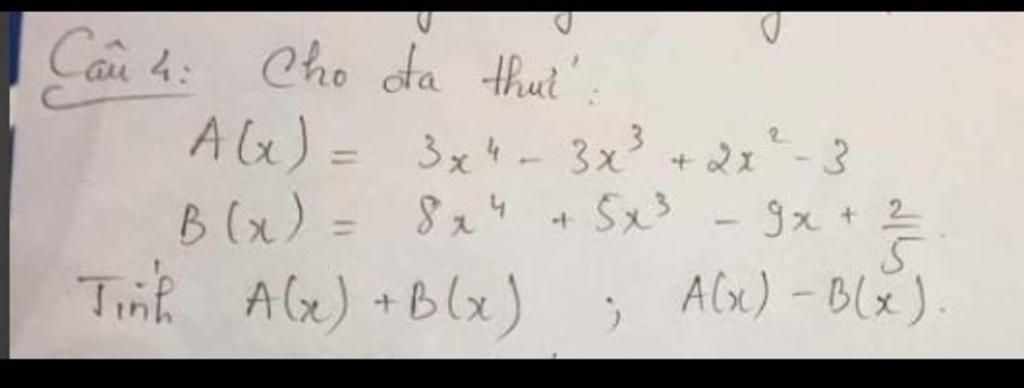 Câu 4: Cho đa thức:
A(x) = 3x⁴ - 3x³ + 2x² - 3
B(x) = 8x⁴ + 5x³ - 9x + 2/5.
Tính A(x) + B(x) ; A(x) - B(x).